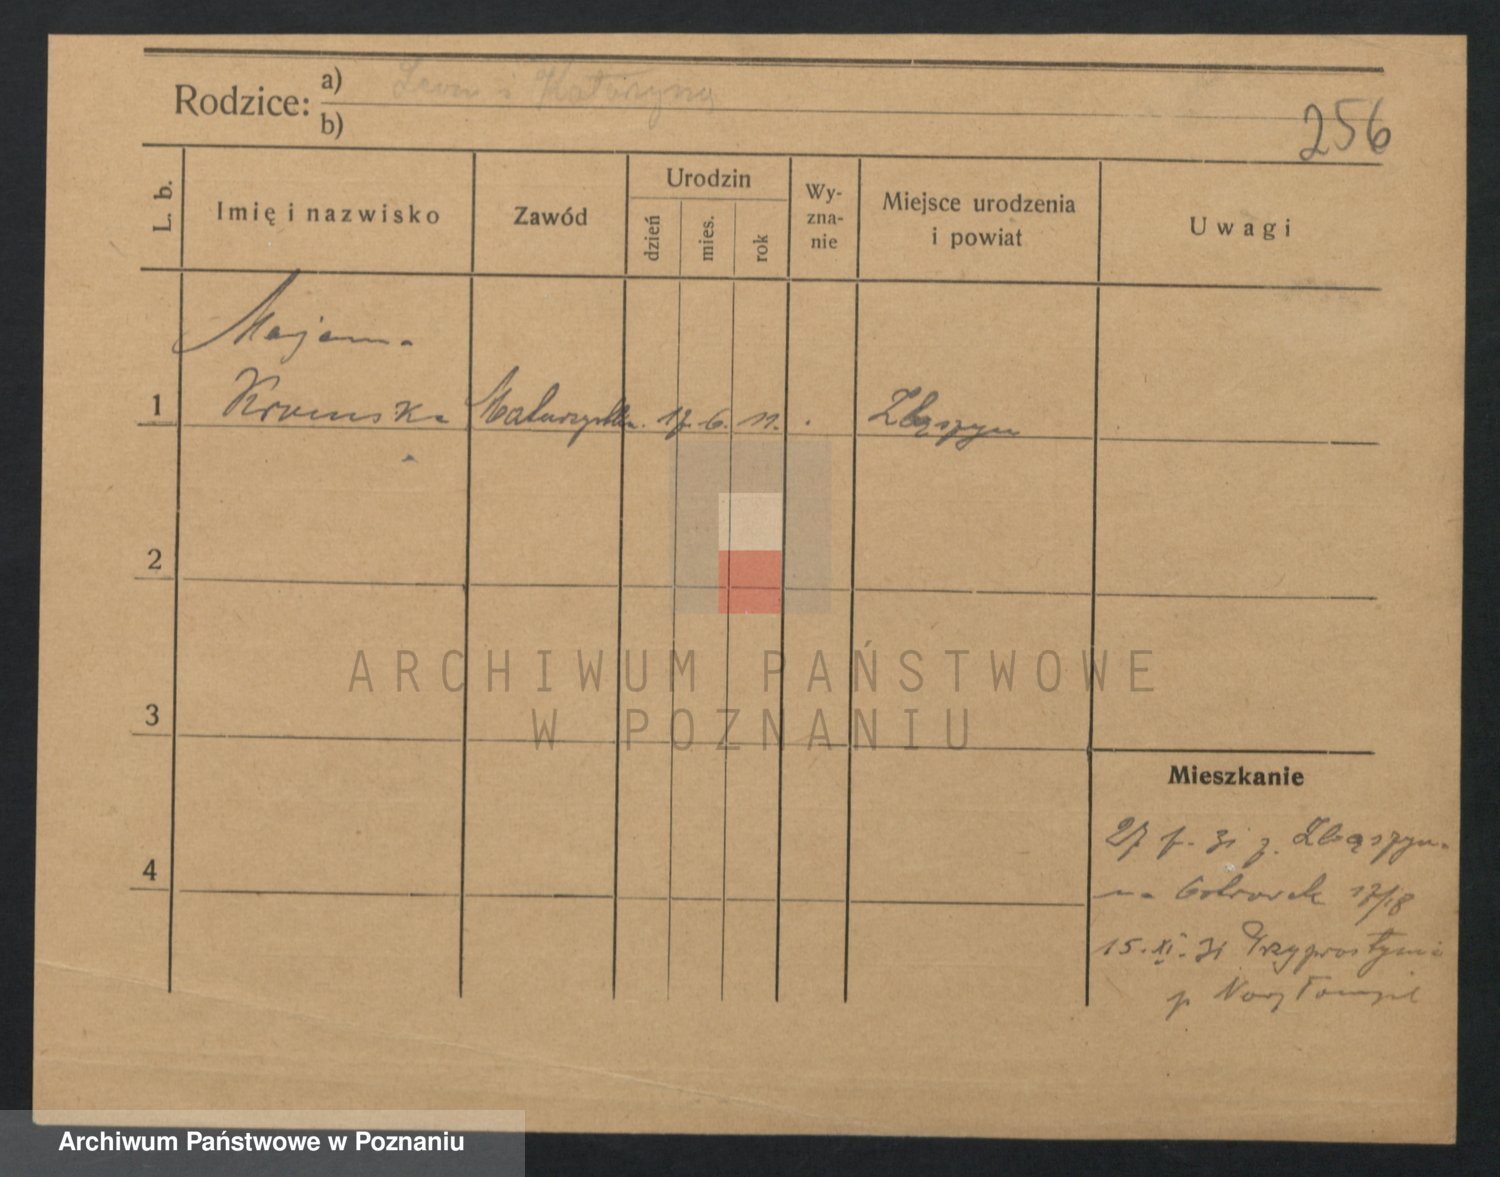 Rodzice: a) Katarzyna
b)
256
L. b.
Imię i nazwisko
Zawód
Urodzin
dzień
mies.
rok
Wy-
zna-
nie
Miejsce urodzenia
i powiat
Uwagi
Marjanna
1 17. 6. 11. Zbąszyn
2
3
4
ARCHIWUM PAŃSTWOWE
W POZNANIU
Mieszkanie
27 31 z. Zbąszyn
17/18
15. XI. 31 Przyprostynia
p Nowy Tomyśl
Archiwum Państwowe w Poznaniu